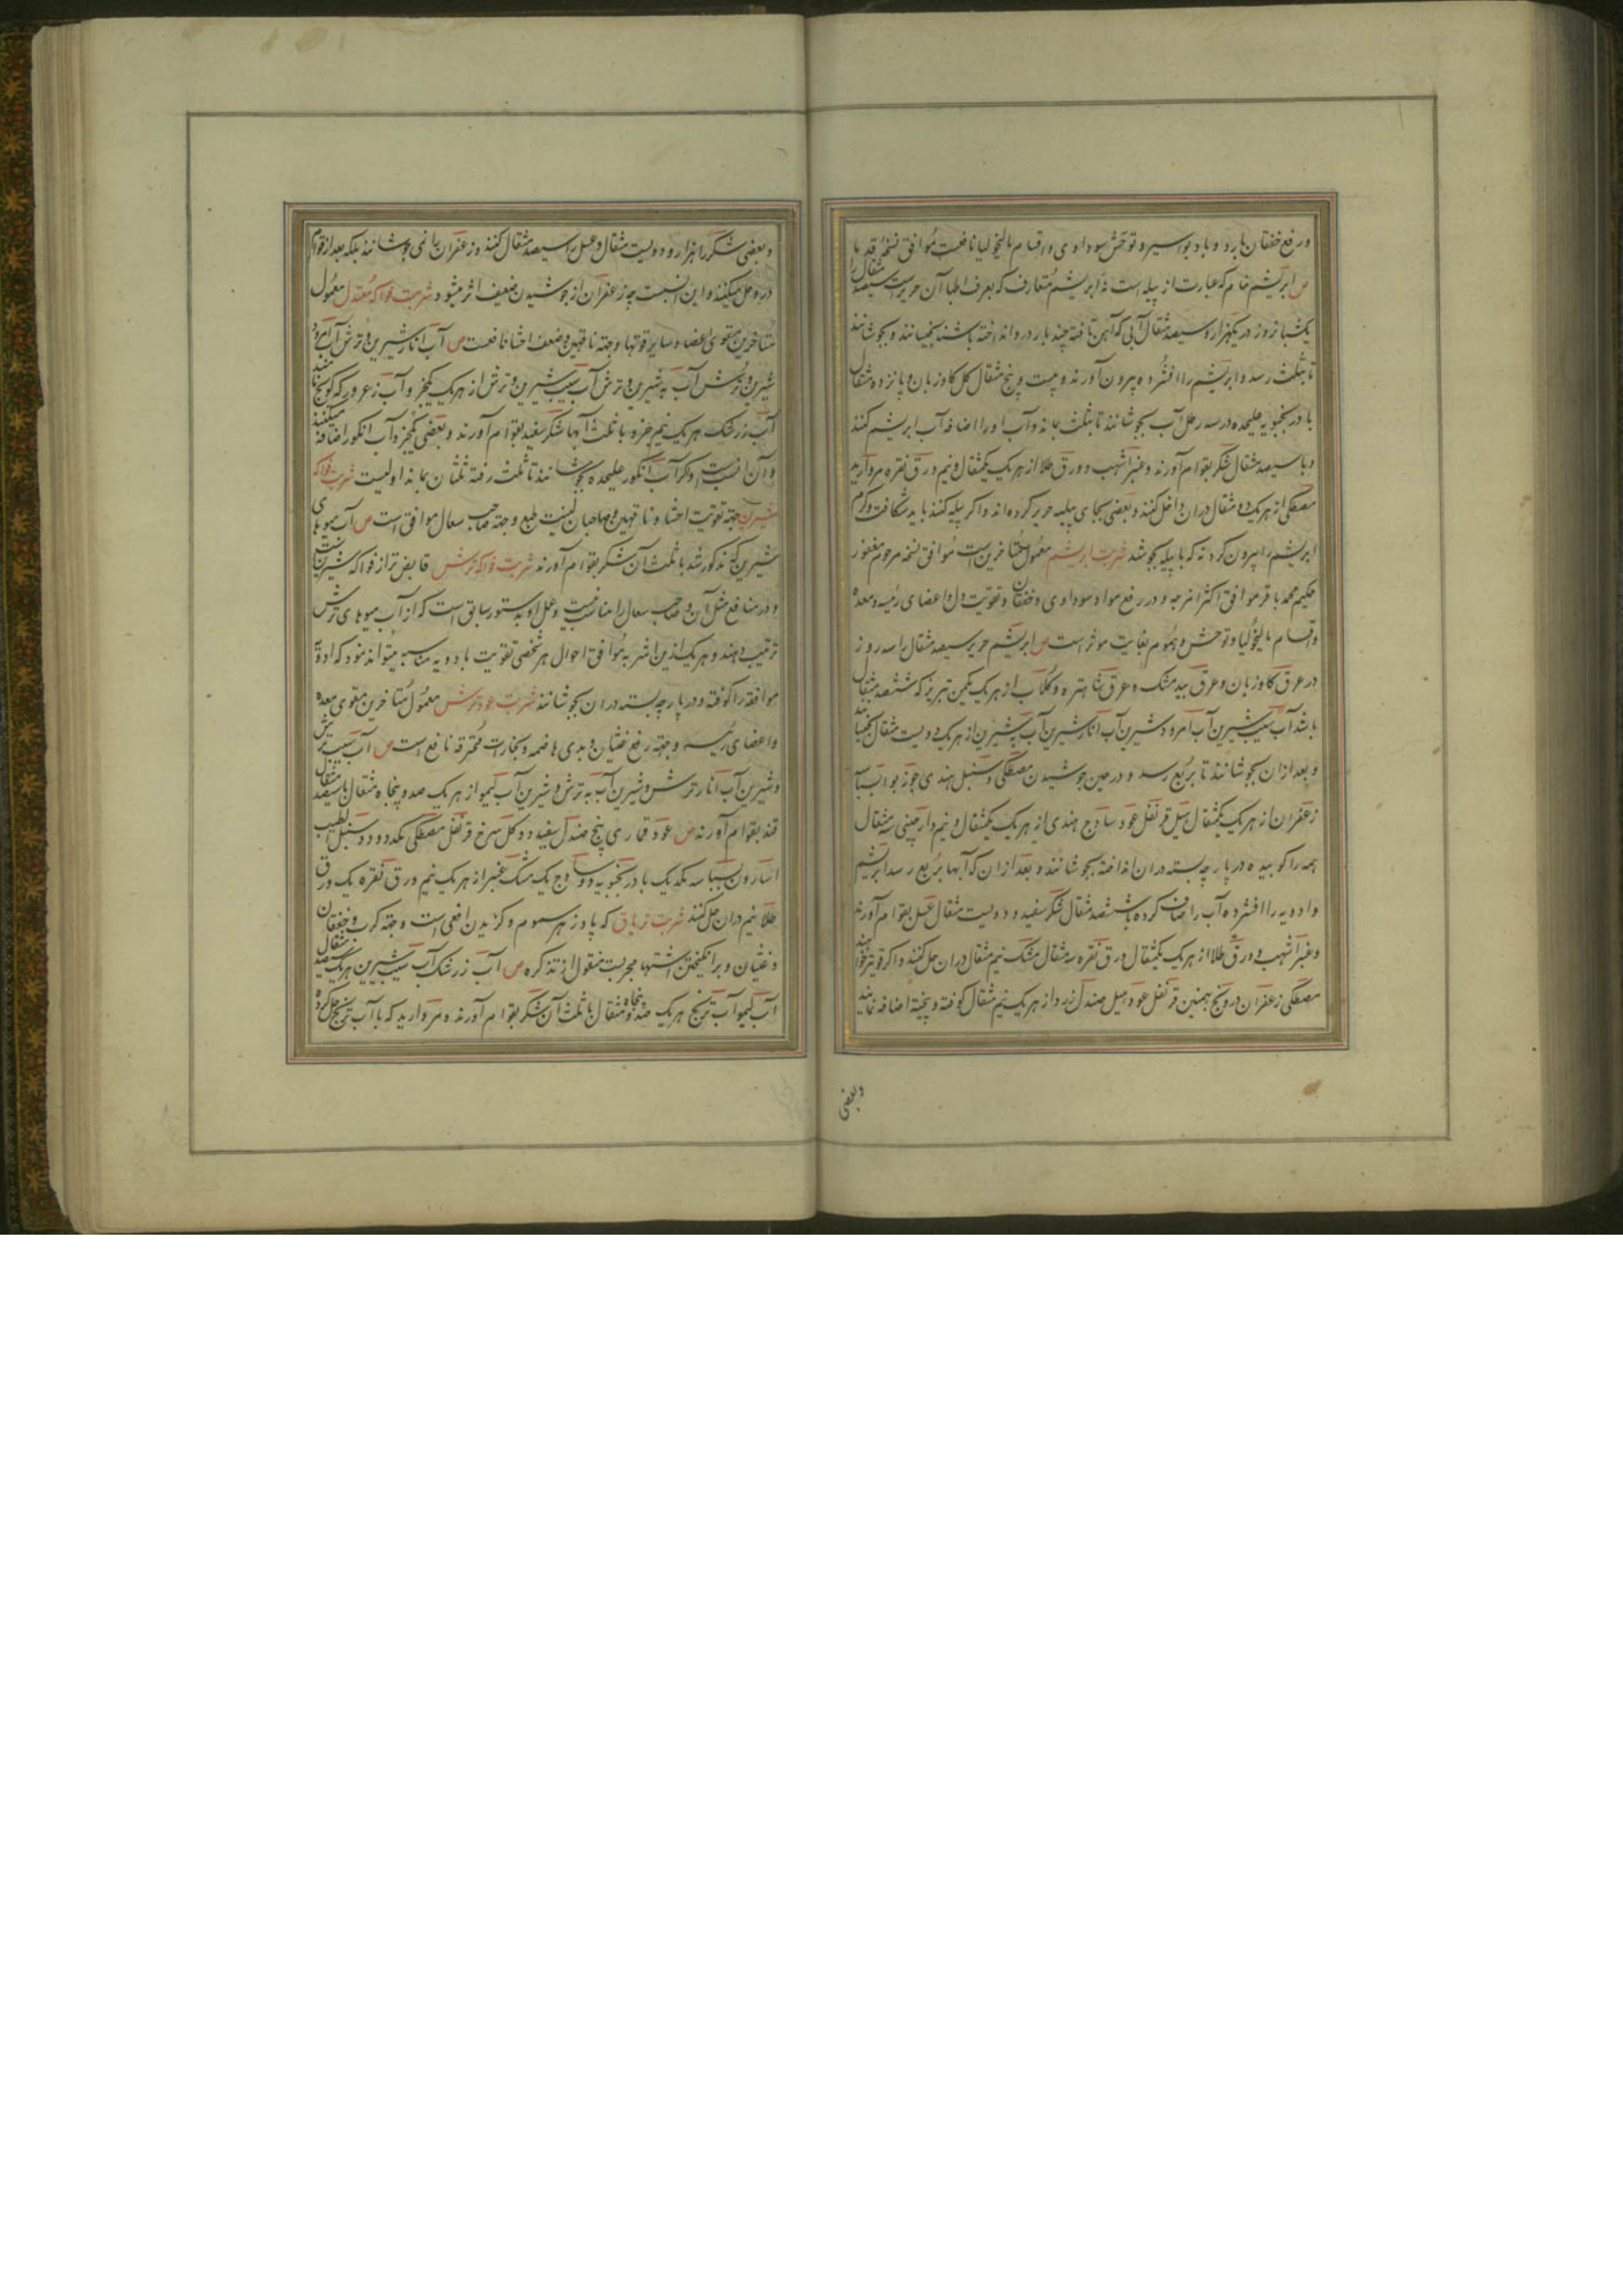 ورفع خفقان بارد و باد بواسیر و توحش سوداوی و اقسام مالیخولیا نافعست موافق نسخه قدما
ص ابریشم خام که عبارت از پیله است نه ابریشم متعارف که بعرف اطبا آن حریرست سیصد مثقال را
یکشبانروز در یکهزار و سیصد مثقال آبی که آهن تافته چند بار در و انداخته باشند بخیسانند و بجوشانند
تا بثلث رسد و ابریشم را افشرده بیرون آورند و بیست و پنج مثقال کل کاوزبان و پانزده مثقال
بادرنجبویه علیحده در سه رطل آب بجوشانند تا بثلث بماند و آب او را اضافه آب ابریشم کنند
و با سیصد مثقال شکر بقوام آورند و عنبر اشهب و ورق طلا از هر یک یکمثقال و نیم ورق نقره مروارید
مصطکی از هر یک دو مثقال دران داخل کنند و بعضی بجای پیله حریر کرده اند و اگر پیله کنند باید شکافت و کرم
ابریشم را بیرون کرد نه که با پیله بجوشد شربت ابریشم معمول متاخرین است موافق نسخه مرحوم مغفور
حکیم محمد باقر موافق اکثر امزجه و در رفع مواد سوداوی و خفقان و تقویت دل و اعضای رئیسه و معده
و اقسام مالیخولیا و توحش و هموم بغایت موثر است ص ابریشم حریر سیصد مثقال را سه روز
در عرق کاوزبان و عرق بیدمشک و عرق شاهتره و کلاب از هر یک یکمن تبریز که ششصد مثقال
باشد آب سیب شیرین آب امرود شیرین آب انار شیرین آب به شیرین از هر یک دویست مثقال بخیسانند
و بعد ازان بجوشانند تا بربع رسد و در حین جوشیدن مصطکی و سنبل هندی جوز بوا بسباسه
زعفران از هر یک یکمثقال هیل قرنفل عود سادج هندی از هر یک یکمثقال و نیم دارچینی سه مثقال
همه را کوبیده در پارچه بسته دران انداخته بجوشانند و بعد ازان که آبها بربع رسد ابریشم
و ادویه را افشرده آب را صاف کرده با ششصد مثقال شکر سفید و دویست مثقال عسل بقوام آورند
و عنبر اشهب و ورق طلا از هر یک یکمثقال ورق نقره سه مثقال مشک نیم مثقال دران حل کنند و اگر قویتر خواهند
مصطکی زعفران درونج بهمنین قرنفل عود هیل صندل زرد از هر یک نیم مثقال کوفته و بیخته اضافه نمایند
وبعضی
و بعضی شکر را هزار و دویست مثقال و عسل را سیصد مثقال کنند و زعفران را نمی جوشانند بلکه بعد از قوام
درو حل میکنند و این انسبست چه زعفران از جوشیدن ضعیف اثر میشود شربت فواکه معتدل معمول
متاخرین مقوی اعضا و سایر قوتها و جهة ناقهین و ضعف احشا نافعست ص آب انار شیرین و ترش آب امرود
شیرین و ترش آب به شیرین و ترش آب سیب شیرین و ترش از هر یک یکجزو آب زعرور که کویج نامند
آب زرشک هر یک نیم جزو با ثلث آبها شکر سفید بقوام آورند و بعضی یکجزو آب انکور اضافه میکنند
و آن انسب است و اگر آب انکور علیحده بجوشانند تا ثلث رفته ثلثان بماند اولیست شربت فواکه
شیرین جهة تقویت احشا و ناقهین و صاحبان لینت طبع و جهة صاحب سعال موافق است ص آب میوهای
شیرین که مذکور شد با ثلث آن شکر بقوام آورند شربت فواکه ترش قابض تر از فواکه شیرین است
و در منافع مثل آن و صاحب سعال را مناسب نیست و عمل او بدستور سابق است که از آب میوهای ترش
ترتیب دهند و هر یک ازین اشربه موافق احوال هر شخصی تقویت بادویه مناسبه میتواند نمود که ادویه
موافقه را کوفته و در پارچه بسته دران بجوشانند شربت عود ترش معمول متاخرین مقوی معده
و اعضای رئیسه و جهة رفع غثیان و بدی هاضمه و بخارات محترقه نافع است ص آب سیب ترش
و شیرین آب انار ترش و شیرین آب به ترش و شیرین آب لیمو از هر یک صد و پنجاه مثقال با سیصد مثقال
قند بقوام آورند ص عود قماری پنج صندل سفید دو کل سرخ قرنفل مصطکی یکدو دو سنبل الطیب
اسارون بسباسه یکدیک بادرنجبویه دو سادج یک مشک عنبر از هر یک نیم ورق نقره یک ورق
طلا نیم دران حل کنند شربت تریاق که پادزهر سموم و کزیدن افعی است و جهة کرب و خفقان
و غثیان و برانکیختن اشتها مجربست منقول از تذکره ص آب زرشک آب سیب شیرین هر یک سیصد مثقال
آب لیمو آب ترنج هر یک صد و پنجاه مثقال با ثلث آن شکر بقوام آورند و مروارید که با آب ترنج حل کرده